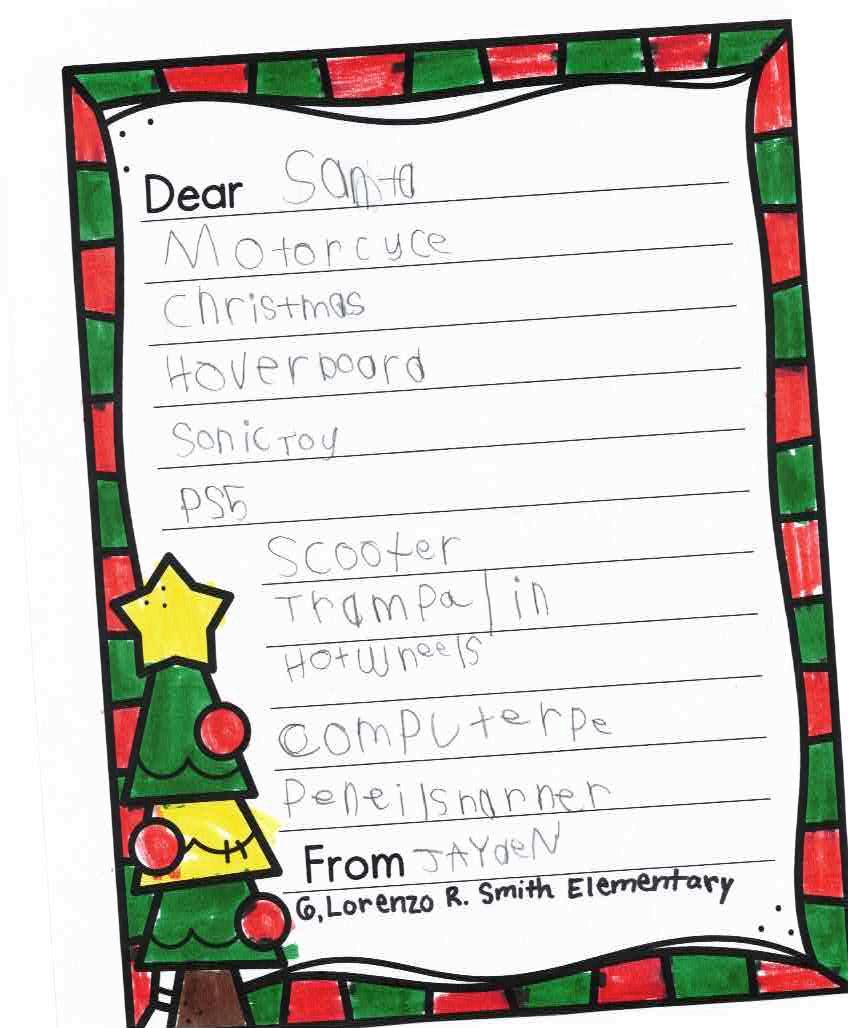 Dear Santa
Motorcyce
Christmas
Hoverboard
Sonic Toy
PS5
Scooter
Trampalin
Hotwheels
computerpe
Peneilsnarner
From JAYdeN
6, Lorenzo R. Smith Elementary